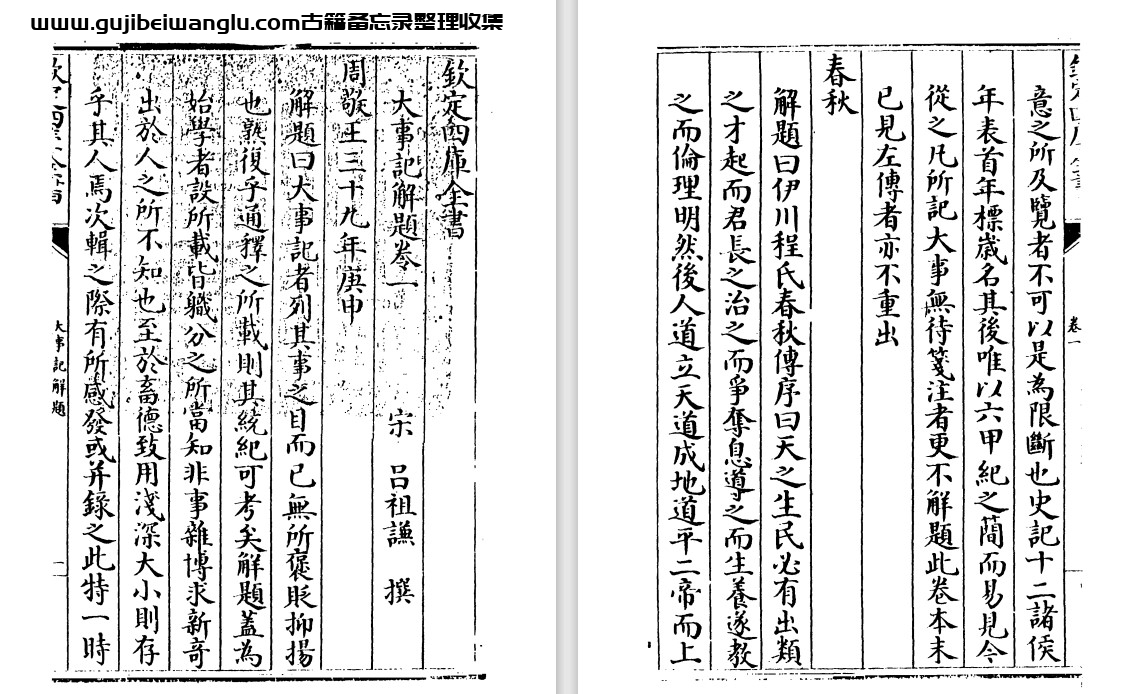 www.gujibeiwanglu.com古籍备忘录整理收集
欽定四庫全書
大事記解題卷一
宋 呂祖謙 撰
周敬王三十九年庚申
解題曰大事記者列其事之目而已無所褒貶抑揚
也熟復乎通釋之所載則其統紀可考矣解題蓋為
始學者設所載皆職分之所當知非事雜博求新奇
出於人之所不知也至於畜德致用淺深大小則存
乎其人焉次輯之際有所感發或并錄之此特一時
大事記解題
一
意之所及覽者不可以是為限斷也史記十二諸侯
年表首年標歲名其後唯以六甲紀之簡而易見今
從之凡所記大事無待箋注者更不解題此卷本末
已見左傳者亦不重出
春秋
解題曰伊川程氏春秋傳序曰天之生民必有出類
之才起而君長之治之而爭奪息導之而生養遂教
之而倫理明然後人道立天道成地道平二帝而上
卷一